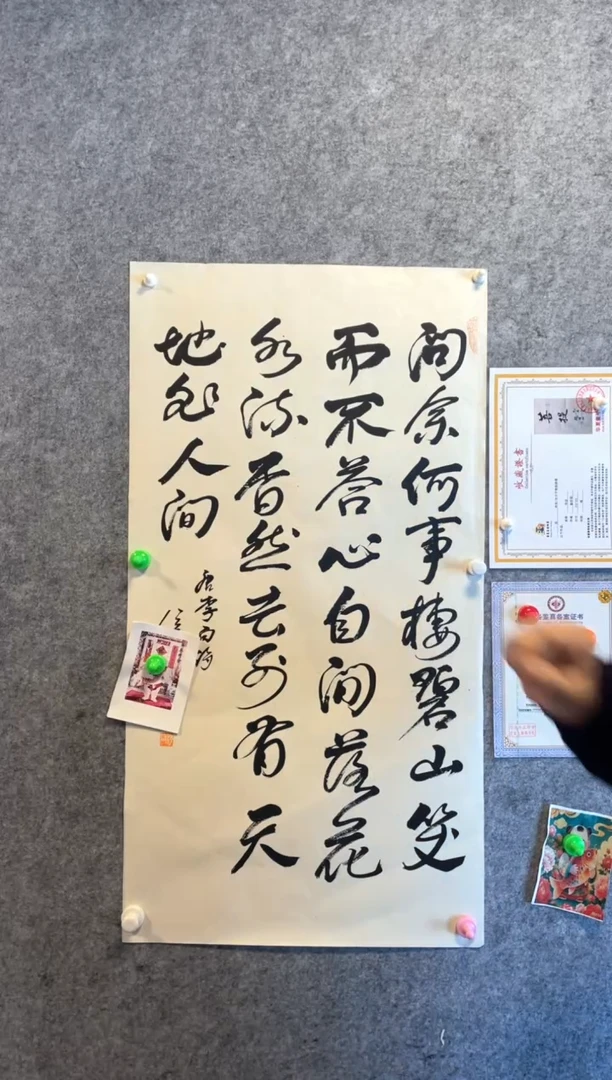 问余何事棲碧山笑
而不答心自间落花
水流杳然去别有天
地非人间
李白诗
菩提
收藏证书
证书